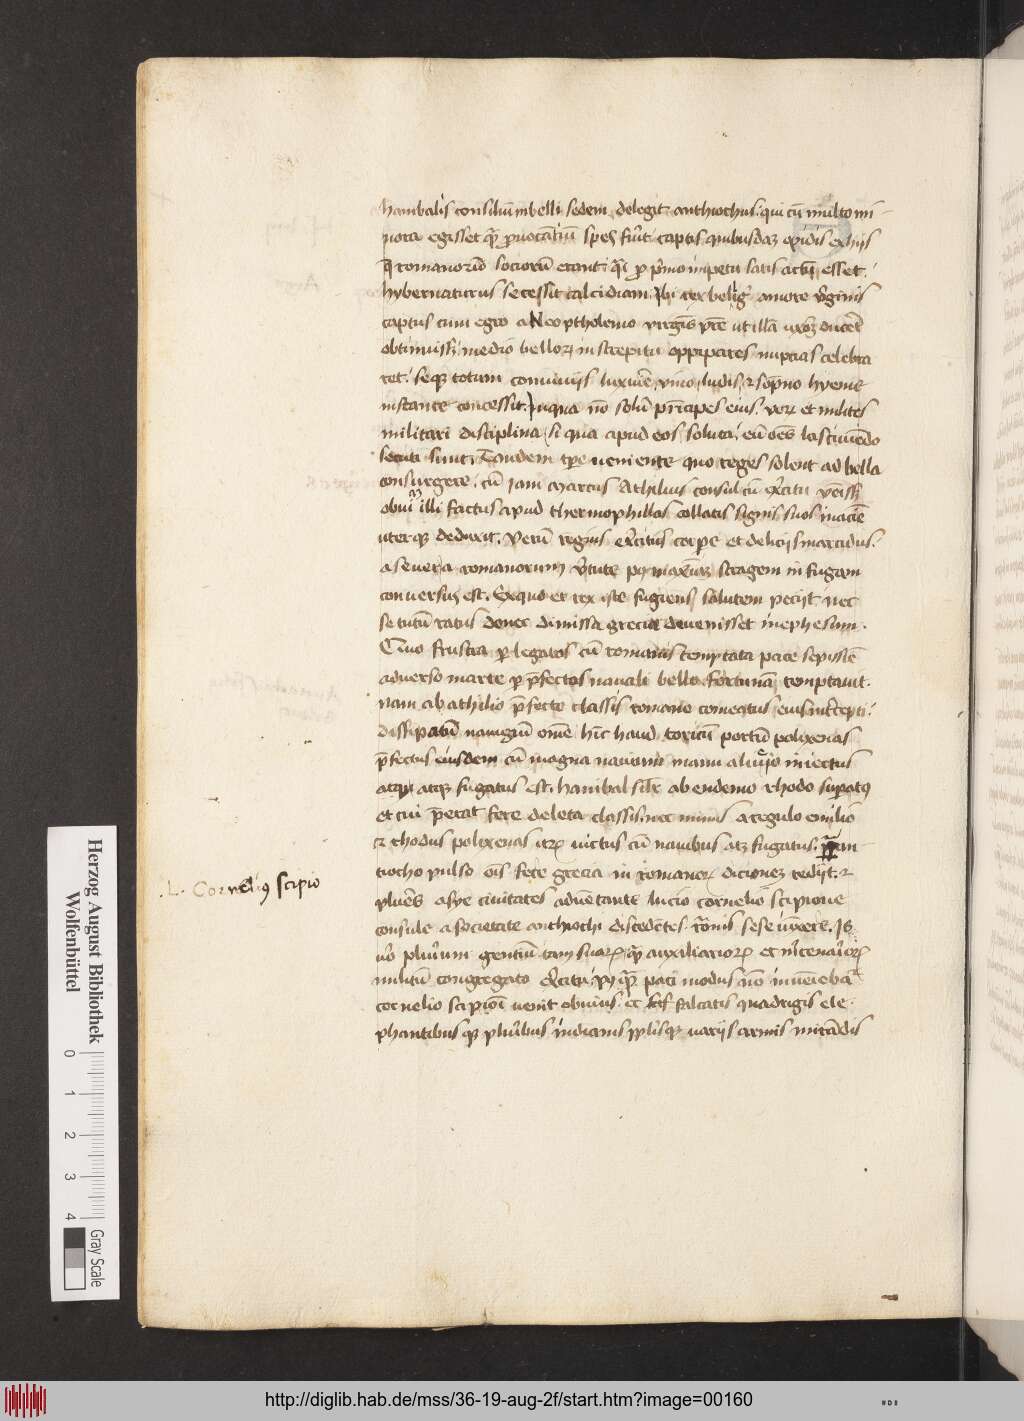 hanibalis consiliū inbelli sedem delegit anthiochus. qui cū multo mi
nora egisset qͣ̄ ꝓuocantiū spes fuīt captis quibusdaꝫ opidis exhijs
q̄ romanorū sociorū erant. qͣi ꝓ pͥmo impetu satis actū esset.
hybernaturus secessit calcidiam. Ibi rex belligͬ amore v̓ginis
captus cum egro a Neoptholemo virgīs pr̄e ut illā uxoꝝ ducer̄
obtinuiss; medio belloꝝ in strepitu oppipares nuptias celebra
ret. seqꝫ totum conuiuijs luxurie, vino, ludis, ⁊ sōpno hyeme
instante concessit. Inqua nō solū prīcipes eius. veꝝ et milites
militari disciplina, si qua apud eos soluta, eū oēs lasciuiēdo
secuti sunt. Tandem tp̄e ueniente quo reges solent ad bella
consurgere, cū iam marcus Athilius consul cū exc̄itu vēiss;
obuiꝰ illi factus apud thermophillas collatis signis suos inaciē
uterqꝫ deduxit. Verū regius exc̄itus torpe et delicijs marcidus.
a seuera romanorum v̓tute maximaꝫ stragem in fugam
conuersus est. Exquo et rex ipse fugiens salutem petijt nec
se tutū ratus donec dimissa grecia deuenisset in ephesum.
Quo frustra ꝑ legatos cū romanis temptata pace sepissiē
aduerso marte ꝑ p̄fectos nauali bello fortunā temptauit.
nam ab athilio p̄fecto classis romane comeatus eius int̓cepti.
dissipatū nauigiū om̄e. hīc haud coricū portū polixenas
p̄fectus eiusdem cū magna nauium manu a liuio iniectus
atqꝫ fugatus est. hanibal sil̄r ab eudemo rhodo suꝑatꝰ
et cui p̄erat fere deleta classis. nec minus a regulo emilio
⁊ rhodus polixenas iteꝝ victus cū nauibus atqꝫ fugatus. an
tiocho pulso oīs fere grecia in romanoꝝ dicionez redijt. ⁊
plures asye ciuitates aduētante lucio cornelio scipione
consule a societate anthiochi discedētes rōmis sese iūxere. Is
ūo pluriūm gentiū tam suaꝝ qͣ̄ auxiliarioꝝ et m̓cenarioꝝ
militū congregato exc̄itu, quͣ̄ pati modus nō inuēiebā
cornelio scipioī uenit obuius. falcatis quadrigis ele
phantibus qꝫ pluribus indianis uarijs armis mirādis
L. Corneliꝰ scipio
Herzog August Bibliothek
Wolfenbüttel
0 1 2 3 4
Gray Scale
http://diglib.hab.de/mss/36-19-aug-2f/start.htm?image=00160